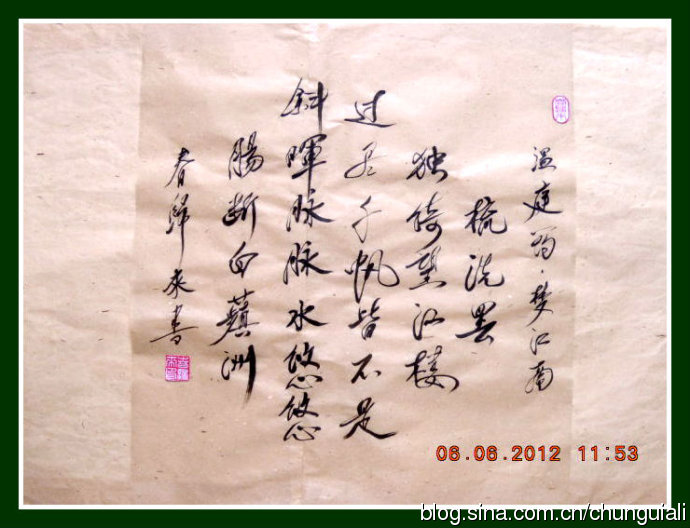 温庭筠·梦江南
梳洗罢
独倚望江楼
过尽千帆皆不是
斜暉脉脉水悠悠
腸断白蘋洲
春归来書
06.06.2012 11:53
blog.sina.com.cn/chunguilali